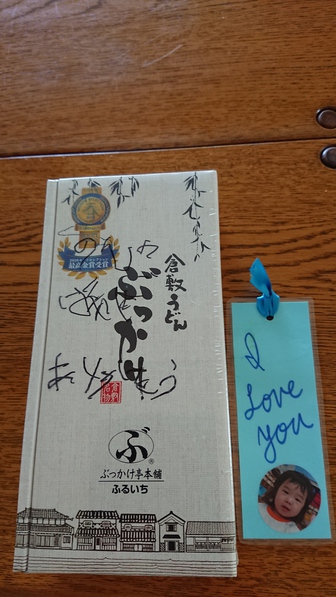 最高金賞受賞
倉敷うどん
ぶっかけ
倉敷名物
ぶ
®
ぶっかけ亭本舗
ふるいち
I
Love
you